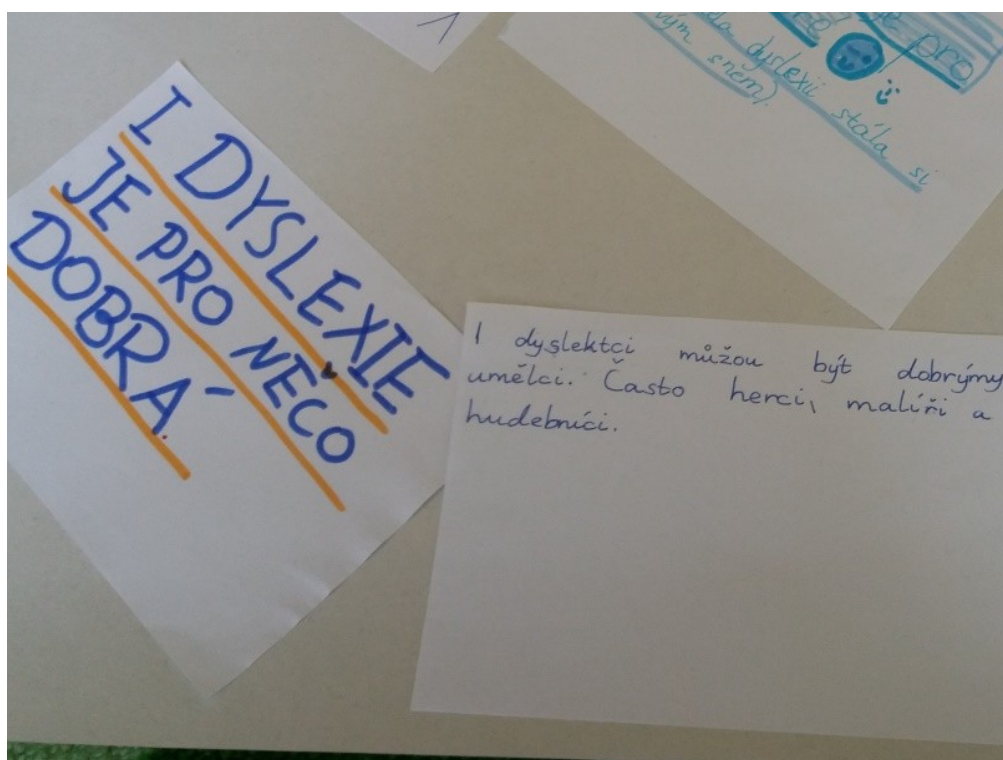 I DYSLEXIE
JE PRO NĚCO
DOBRÁ.
I dyslektci můžou být dobrými
umělci. Často herci, malíři a
hudebníci.
je pro
dyslexii stála si
svým snem).